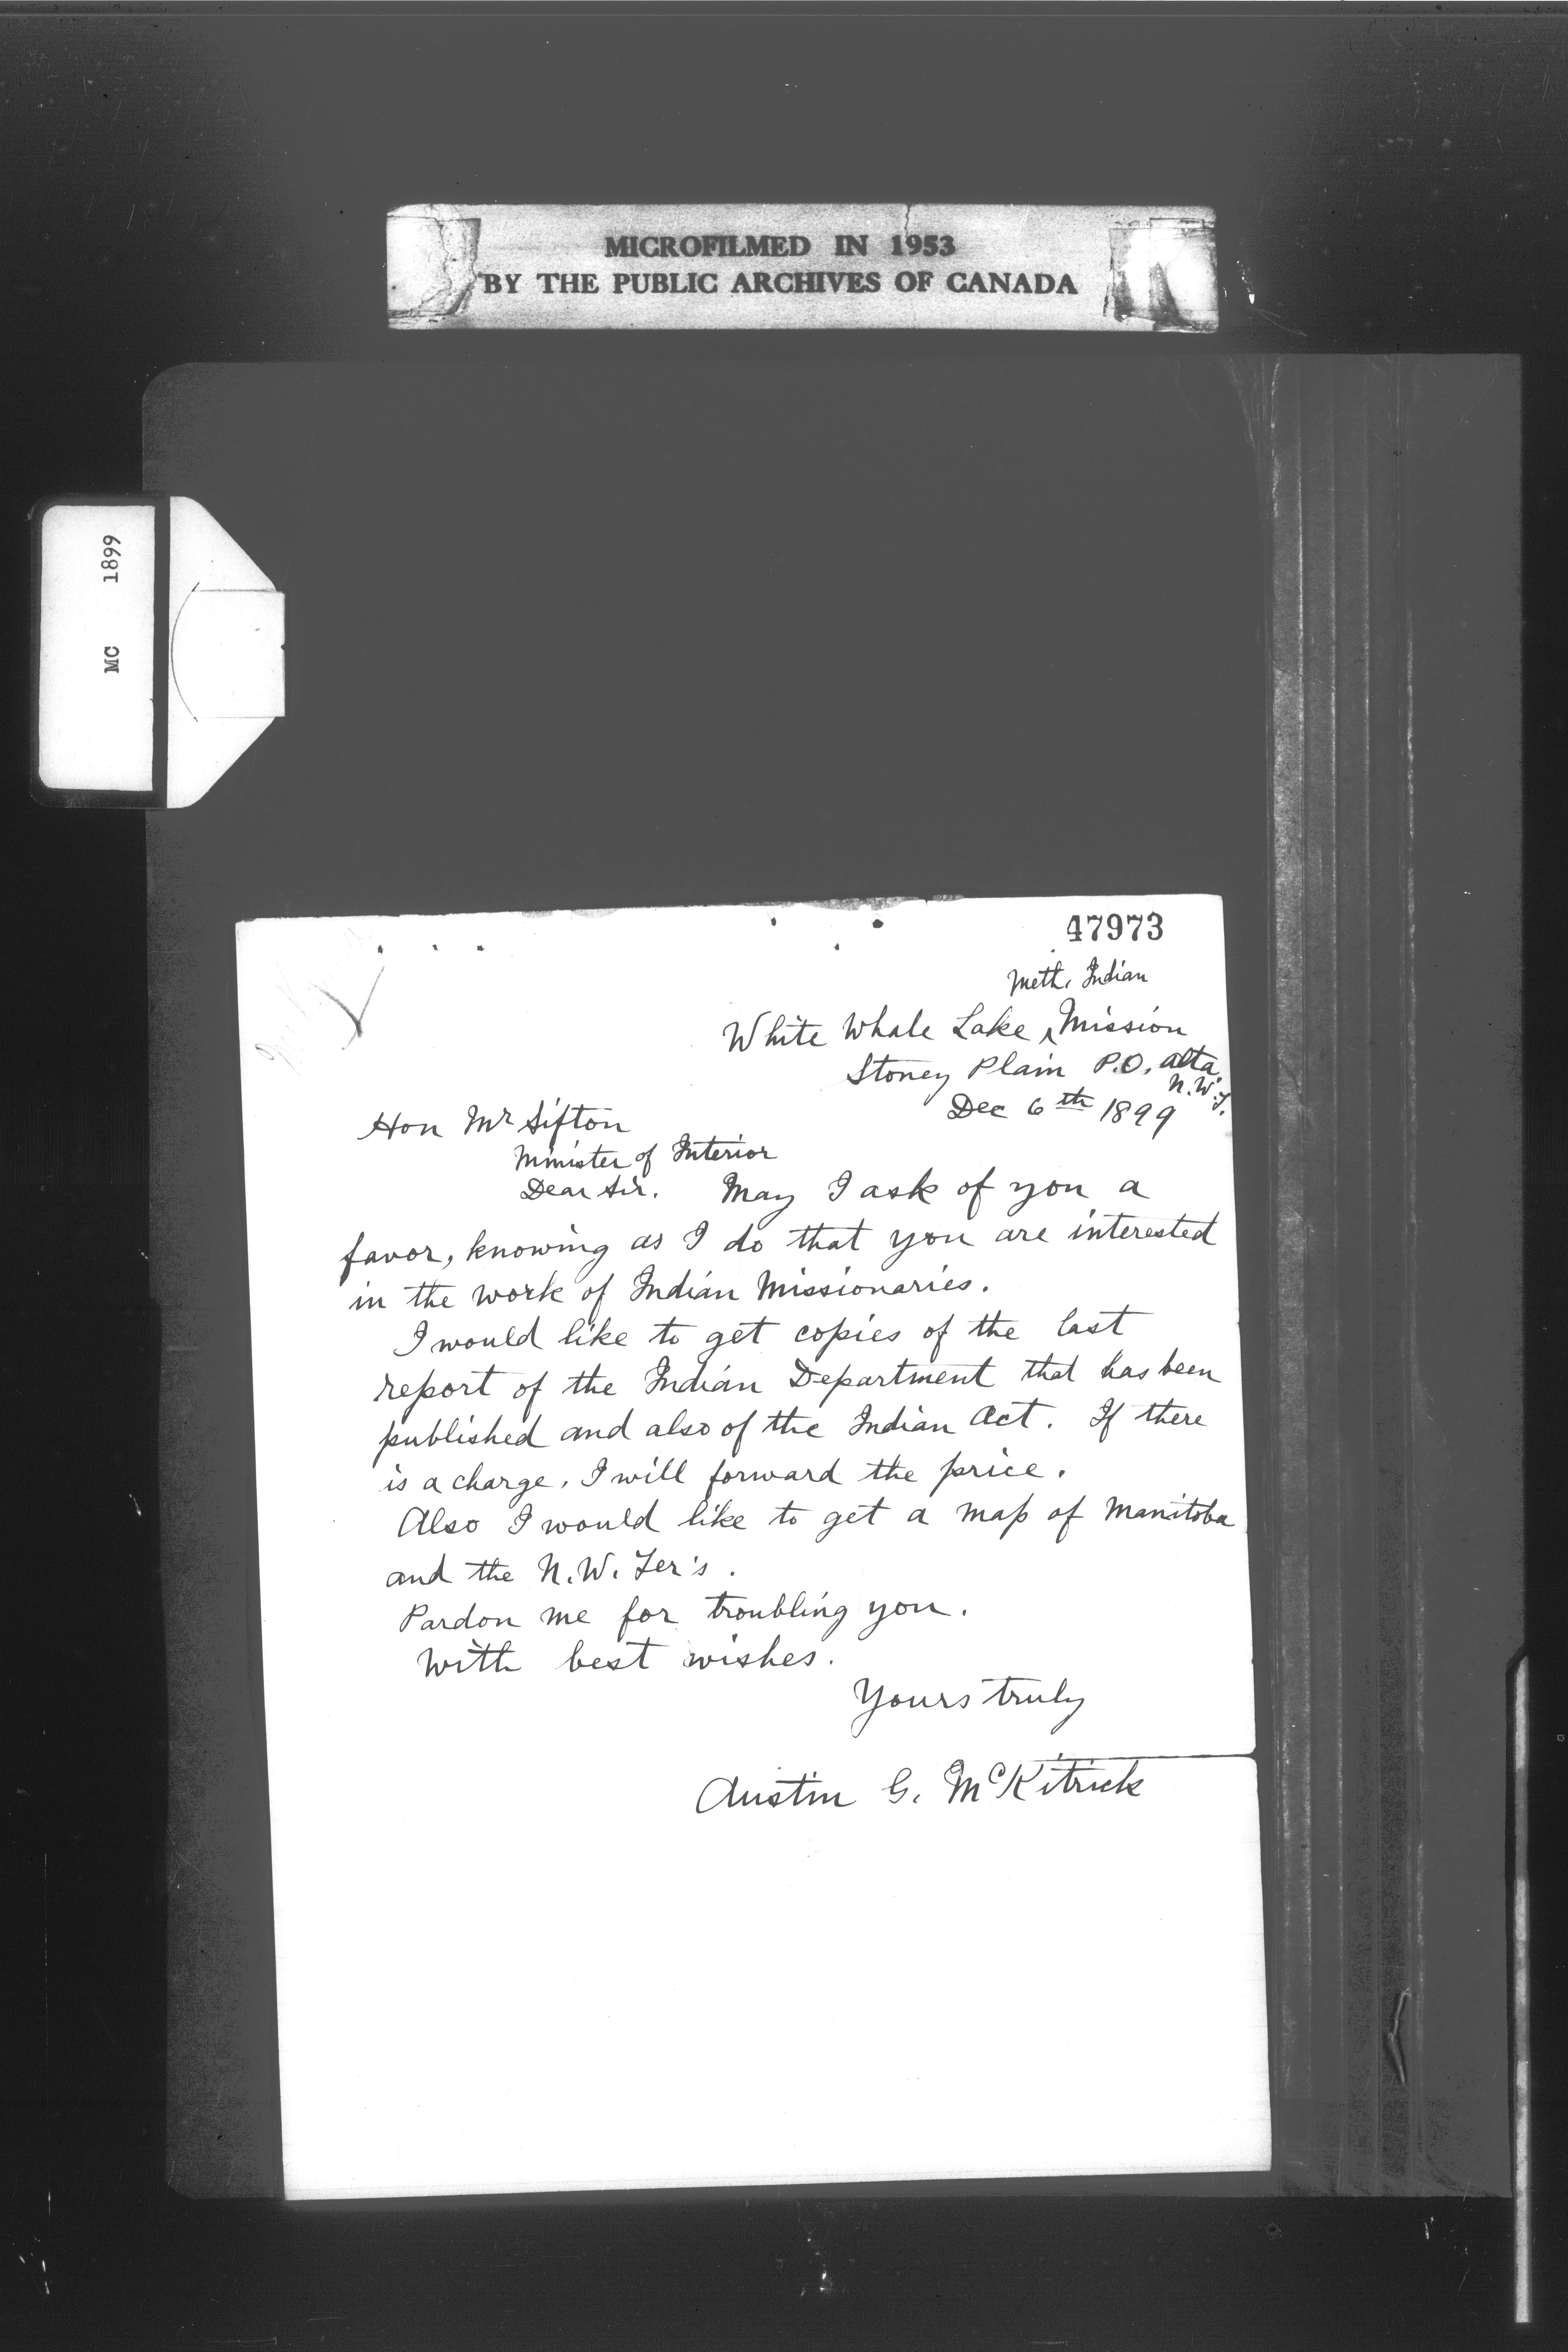 MICROFILMED IN 1953
BY THE PUBLIC ARCHIVES OF CANADA
MC 1899
47973
Meth. Indian
White Whale Lake ^ Mission
Stoney Plain P.O. Alta.
N.W.T.
Dec 6th 1899
Hon Mr Sifton
Minister of Interior
Dear Sir. May I ask of you a
favor, knowing as I do that you are interested
in the work of Indian Missionaries.
I would like to get copies of the last
report of the Indian Department that has been
published and also of the Indian Act. If there
is a charge, I will forward the price.
Also I would like to get a map of Manitoba
and the N.W. Ter's.
Pardon me for troubling you.
With best wishes.
Yours truly
Austin G. McKitrick